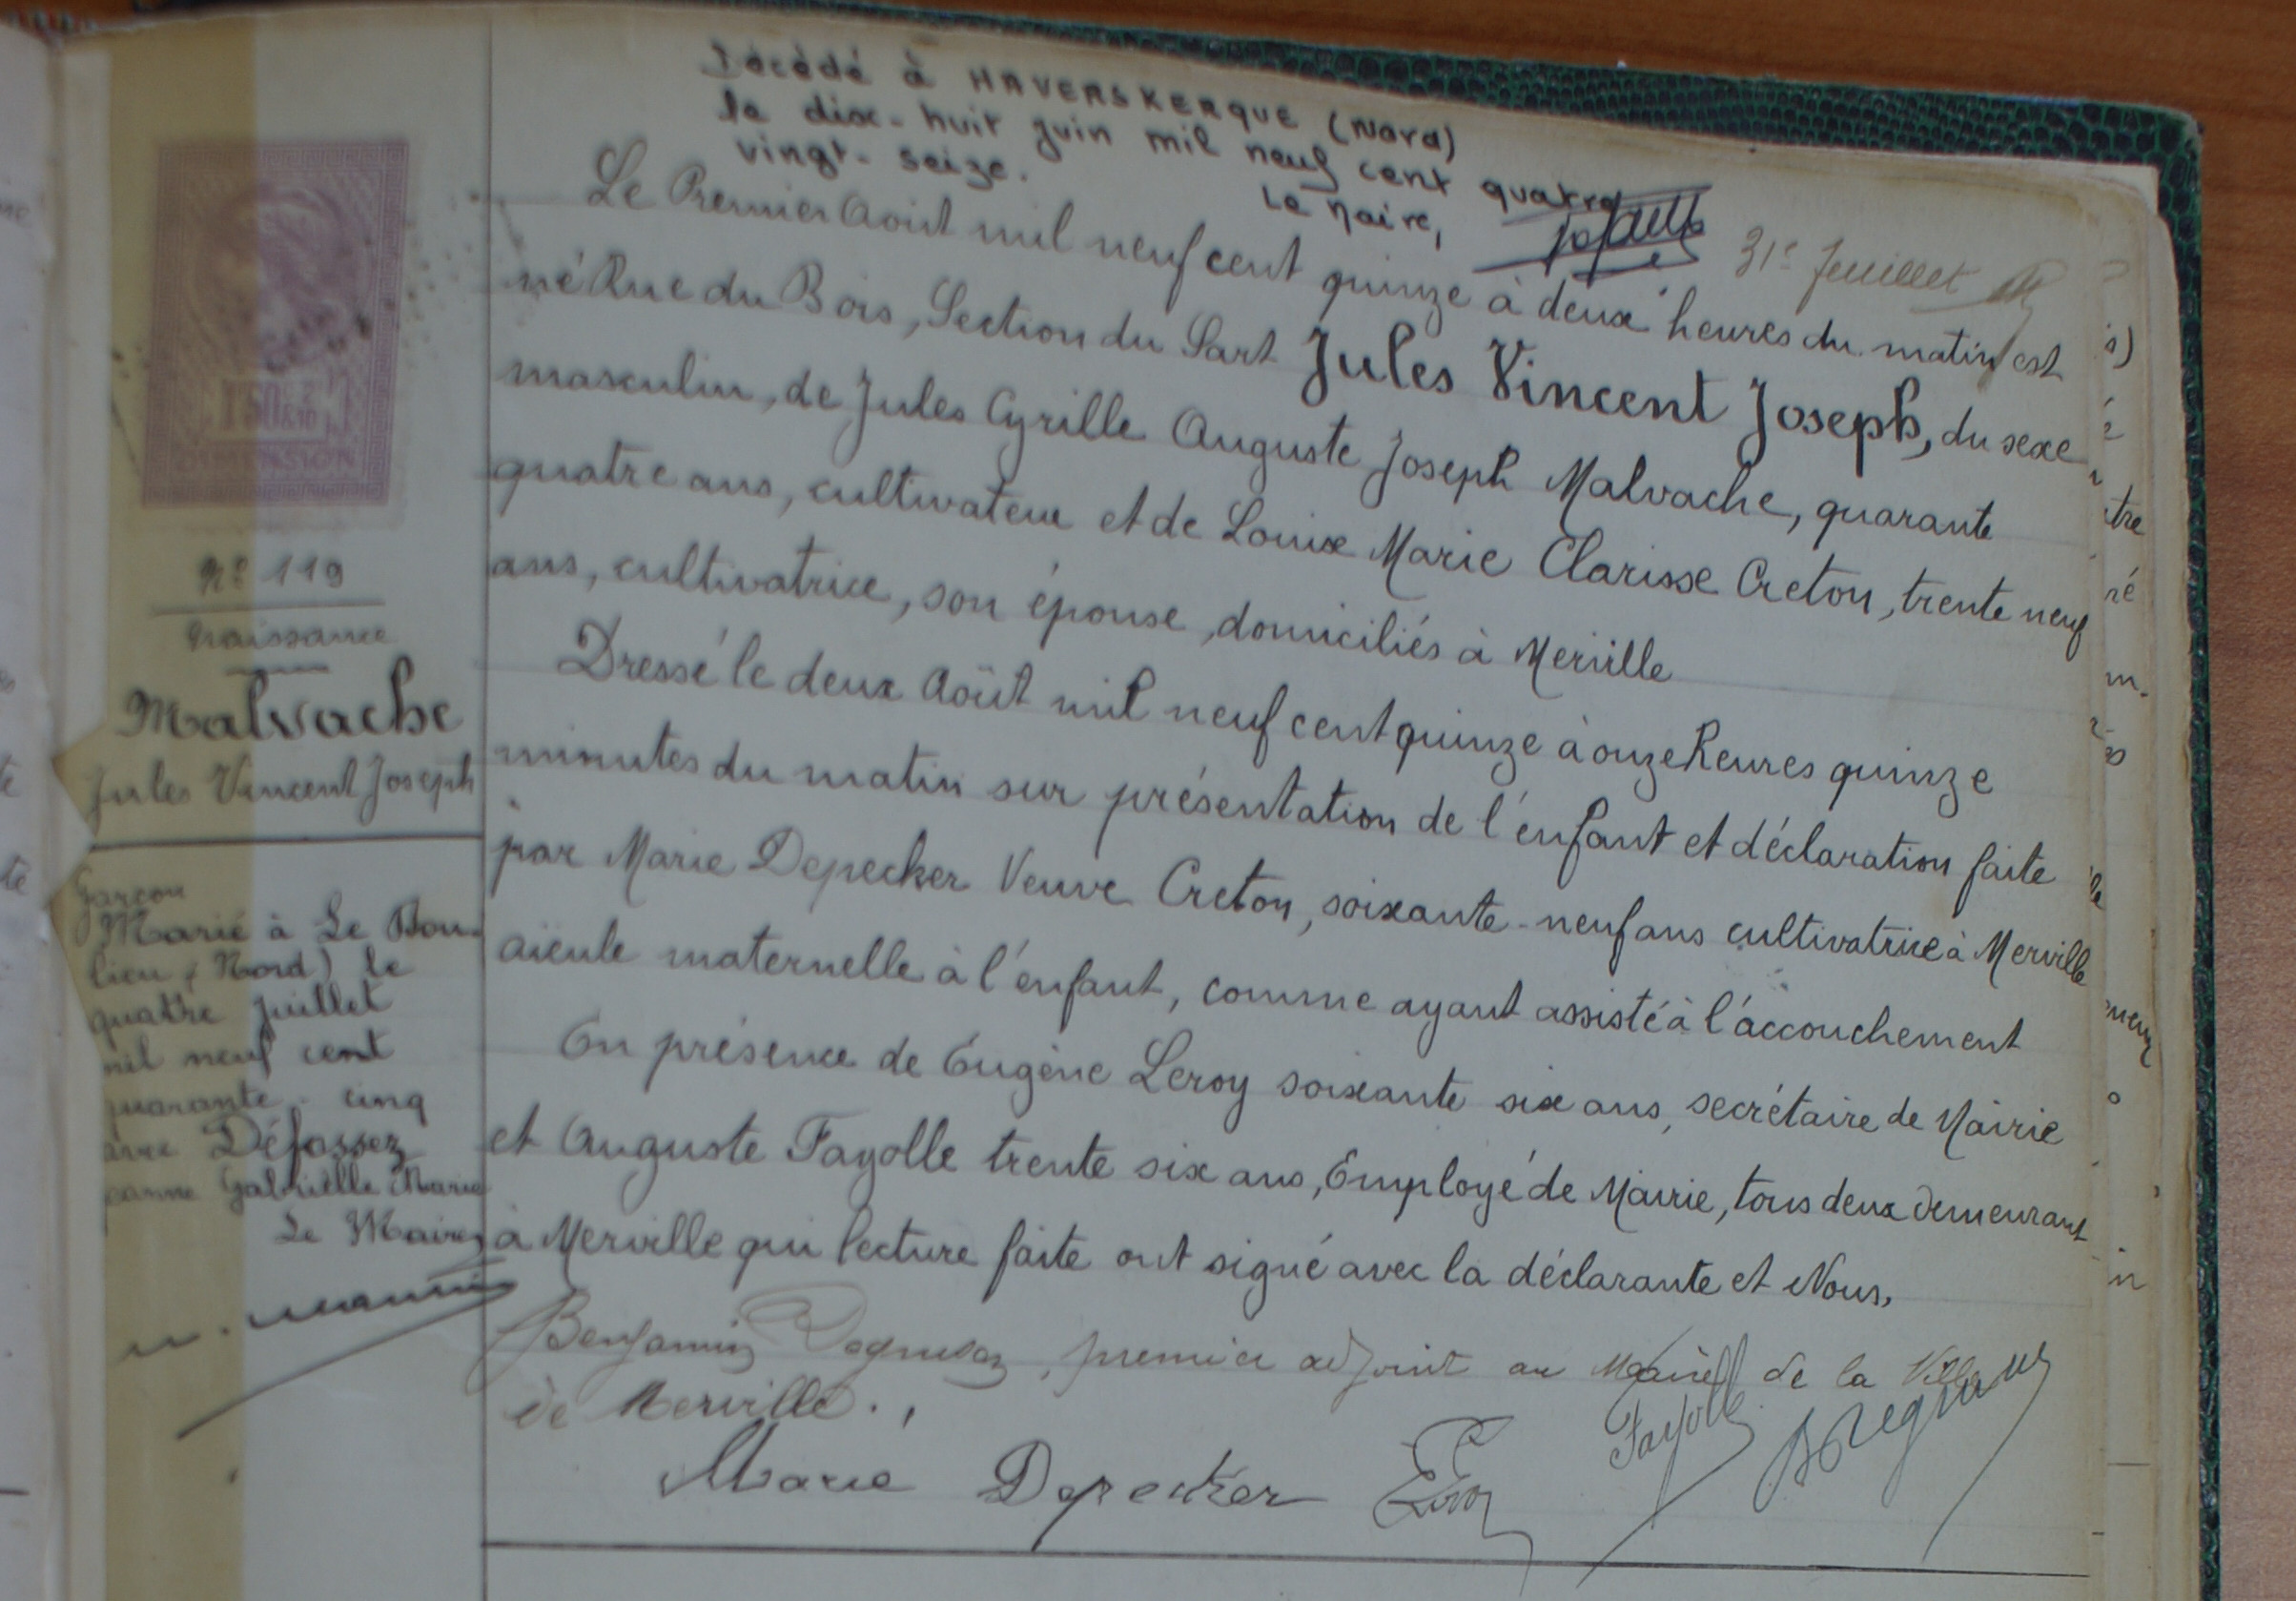 Décédé à HAVERSKERQUE (Nord)
le dix-huit juin mil neuf cent quatre
vingt-seize.
Le Maire,
31e feuillet
Le Premier Août mil neuf cent quinze à deux heures du matin est
né Rue du Bois, Section du Sart Jules Vincent Joseph, du sexe
masculin, de Jules Cyrille Auguste Joseph Malvache, quarante
quatre ans, cultivateur et de Louise Marie Clarisse Creton, trente neuf
ans, cultivatrice, son épouse, domiciliés à Merville
Dressé le deux Août mil neuf cent quinze à onze heures quinze
minutes du matin sur présentation de l'enfant et déclaration faite
par Marie Depecker Veuve Creton, soixante-neuf ans cultivatrice à Merville
aïeule maternelle à l'enfant, comme ayant assisté à l'accouchement
En présence de Eugène Leroy soixante six ans, secrétaire de Mairie
et Auguste Fayolle trente six ans, Employé de Mairie, tous deux demeurant
à Merville qui lecture faite ont signé avec la déclarante et Nous,
Benjamin , premier adjoint au Maire de la Ville
de Merville.,
Marie Depecker Leroy Fayolle
DIMENSION
No 119
Naissance
Malvache
Jules Vincent Joseph
garçon
Marié à Le Dou-
lieu (Nord) le
quatre juillet
mil neuf cent
quarante-cinq
avec Défossez
Gabrielle Marie
Le Maire,